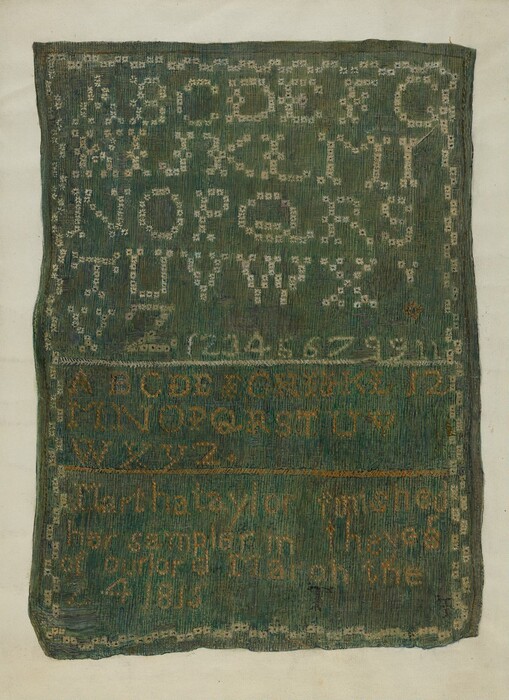 ABCDEFG
HIJKLM
NOPQRS
TUVWX
YZ 1234567
ABCDEFGHIJKL 12
MNOPQRSTUV
WXYZ
Martha taylor finished
her sampler in the
of our lord March the
4